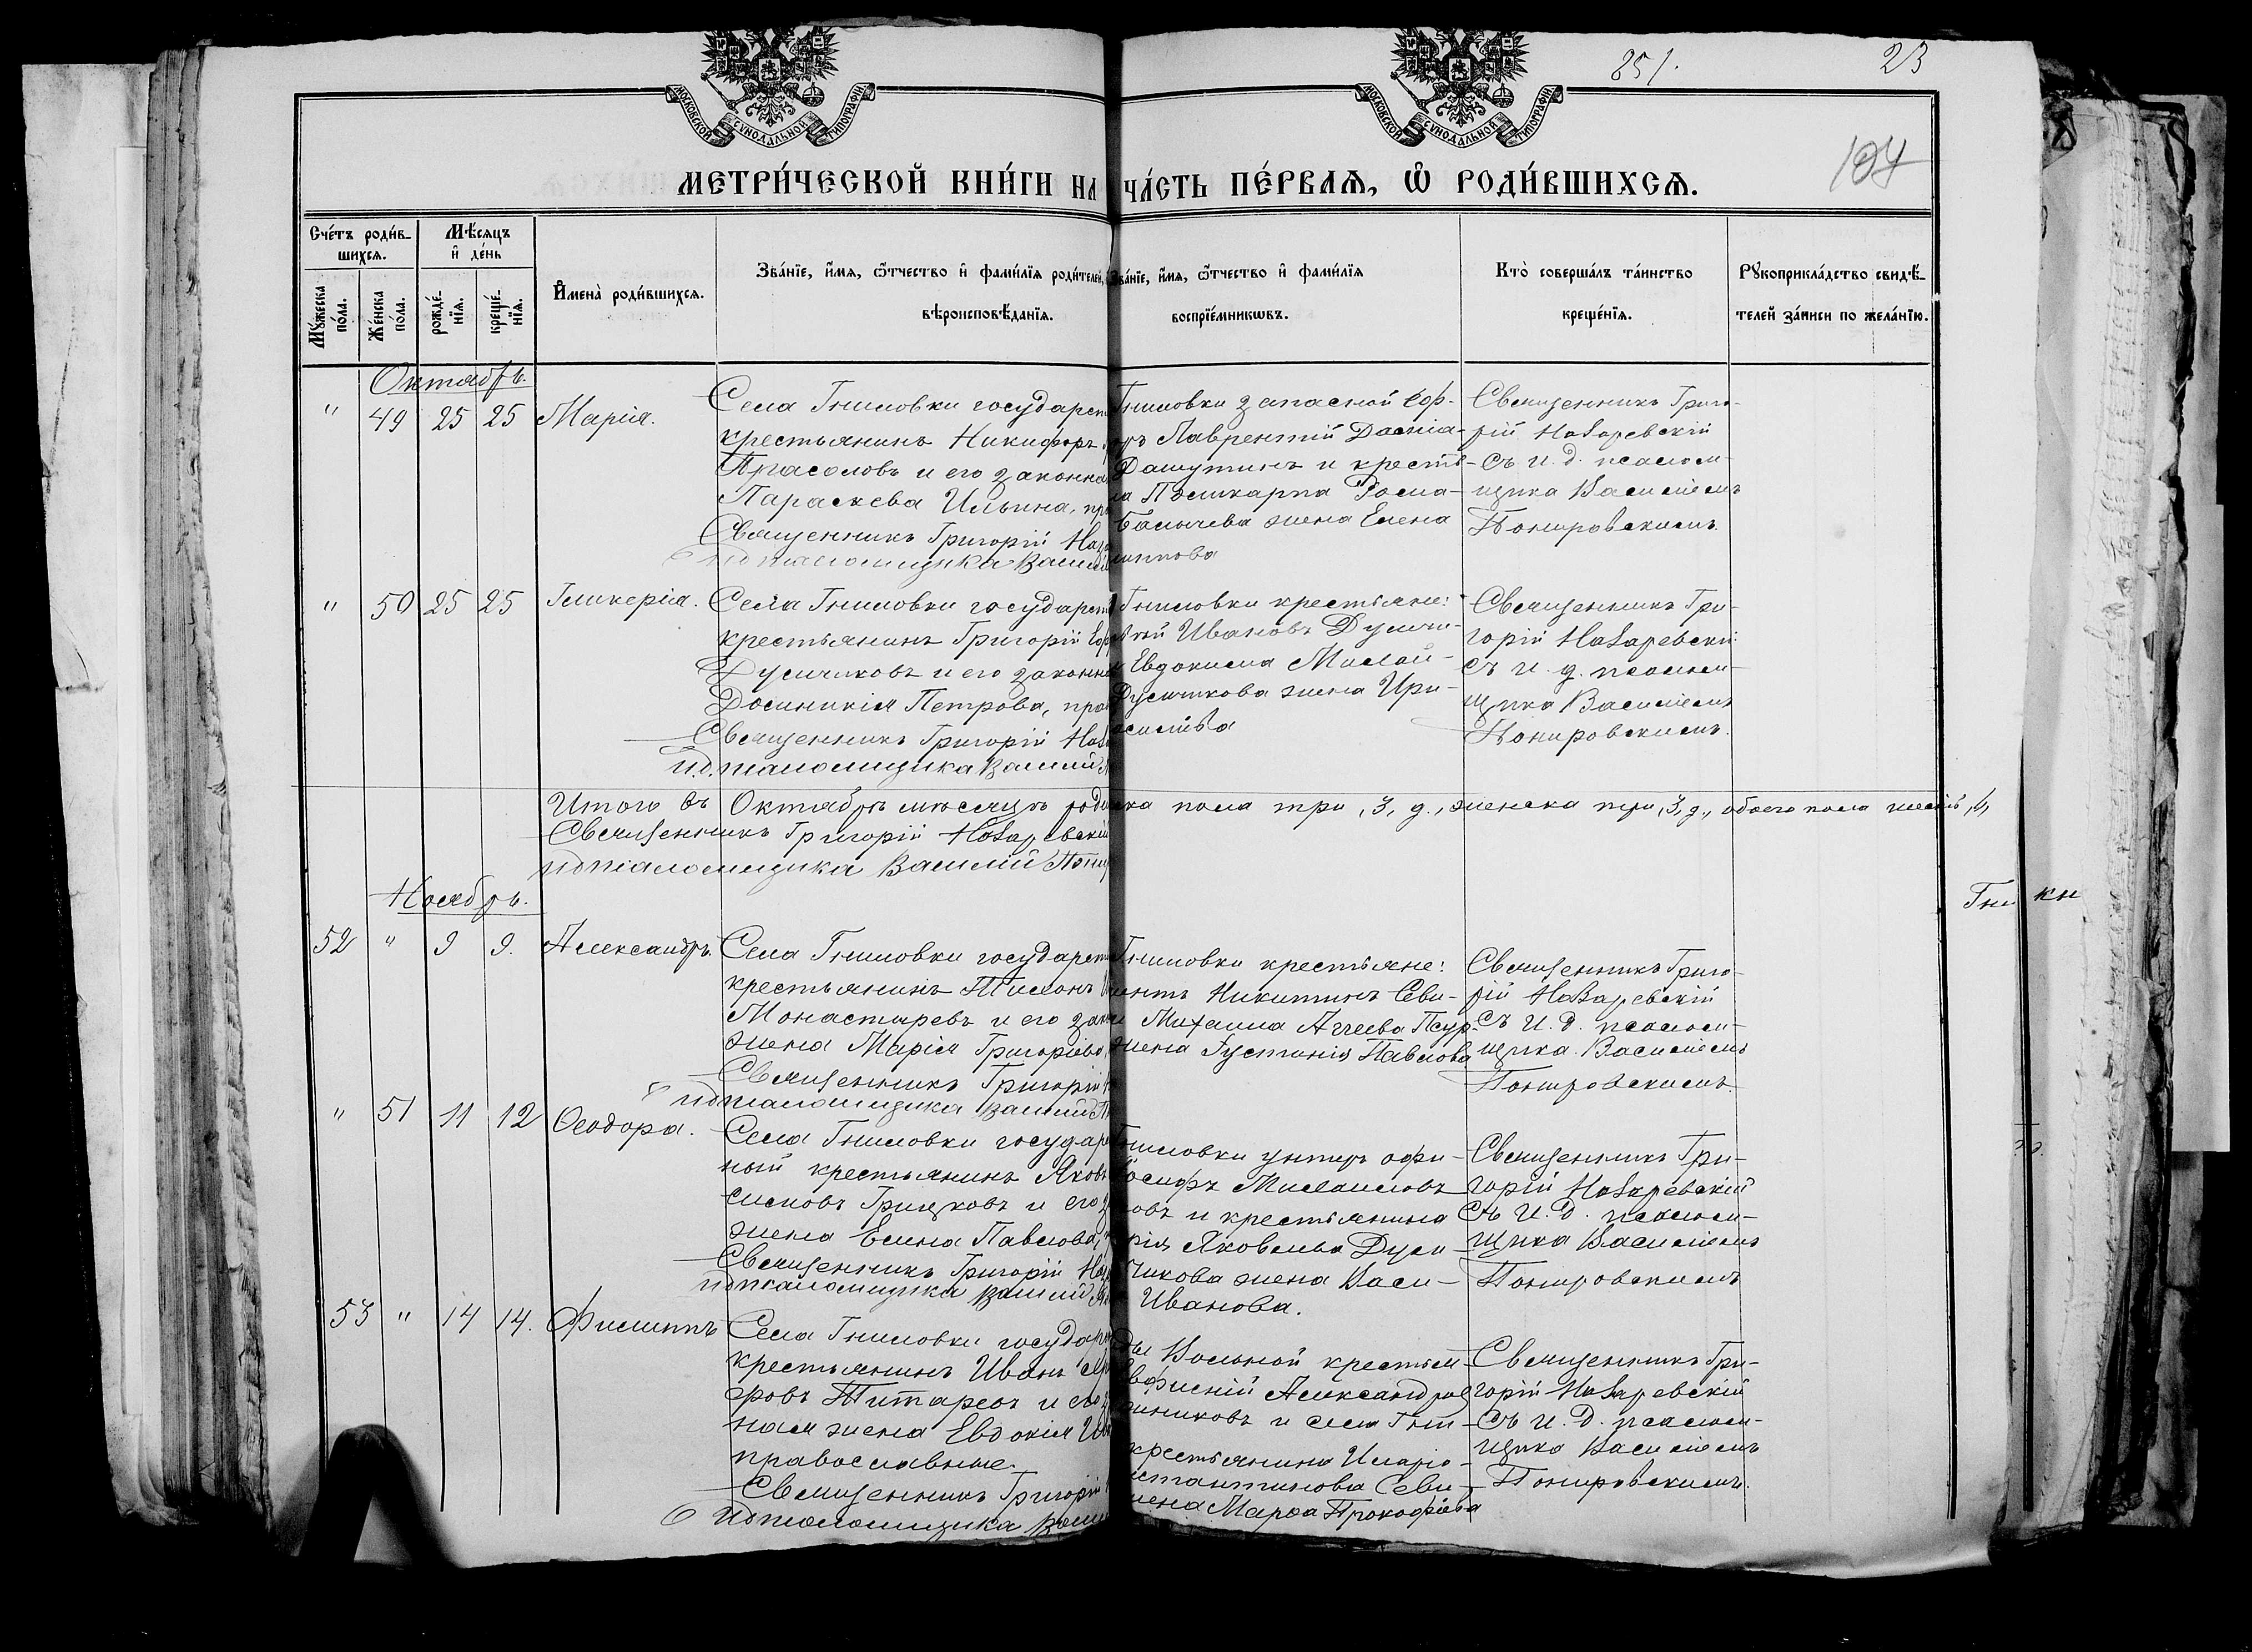 МОСКОВСКОЙ СѴНОДАЛЬНОЙ ТИПОГРАФІИ
МОСКОВСКОЙ СѴНОДАЛЬНОЙ ТИПОГРАФІИ
851.
23
104
МЕТРИ́ЧЕСКОЙ КНИ́ГИ НА
ЧА́СТЬ ПЕ́РВАЯ, Ѡ҆ РОДИ́ВШИХСЯ.
Сче́тъ роди́в-
шихся.
Мѣ́сяцъ
и҆ де́нь
Мꙋ́жеска
по́ла.
Же́нска
по́ла.
рожде́-
нїя.
креще́-
нїя.
И҆мена̀ роди́вшихся.
Зва́нїе, и҆́мя, ѻ҆́тчество и҆ фами́лїя роди́телей,
вѣроисповѣ́данїя.
Зва́нїе, и҆́мя, ѻ҆́тчество и҆ фами́лїя
воспрїе́мникѡвъ.
Кто̀ соверша́лъ та́инство
креще́нїя.
Рꙋкоприкла́дство свидѣ́-
телей за́писи по жела́нїю.
Октябрь.
" 49 25 25 Марія.
Села Гниловки государст
крестьянинъ Никифоръ
Прасоловъ и его законна
Параскева Ильина, пр
Священникъ Григорій Наза
и д псаломщика Васил
Гниловки запасной еф-
оръ Лаврентій
Дашутинъ и кресть-
на Поликарпа Рома-
жена Елена
Священникъ Григо-
рій Назаревскій
съ и. д. псалом-
щика Василіемъ
Понировскимъ.
" 50 25 25 Гликерія.
Села Гниловки государст
крестьянинъ Григорій
Дусичиковъ и его законна
Домникія Петрова, прав
Священникъ Григорій Наза
и.д. псаломщика Василій
Гниловки крестьяне:
Ивановъ
Евдокима
жена Ири-
Священникъ Гри-
горій Назаревскій
съ и. д. псалом-
щика Василіемъ
Понировскимъ.
Итого въ Октябрѣ мѣсяцѣ роди
ска пола три, 3, д., женска три, 3, д., обоего пола шесть, 6,
Священникъ Григорій Назаревскій
и д псаломщика Василій Пони
Ноябрь.
52 " 9 9. Александръ.
Села Гниловки государст
крестьянинъ Тихонъ
Монастыревъ и его зак
жена Марія Григоріева,
Священникъ Григорій
и д псаломщика Василій
Гниловки крестьяне:
Никитинъ Севи-
Михаила Агеева
жена Іустинія Павлова
Священникъ Григо-
рій Назаревскій
съ и. д. псалом-
щика Василіемъ
Понировскимъ.
" 51 11 12 Ѳеодора.
Села Гниловки государ
ный крестьянинъ Яковъ
Грицковъ и его
жена Елена Павлова,
Священникъ Григорій Наза
и д псаломщика Василій
Гниловки унтеръ офи-
Іосифъ Михаиловъ
овъ и крестьянина
Яковлева Дуси-
чикова жена Васи-
Иванова.
Священникъ Гри-
горій Назаревскій
съ и. д. псалом-
щика Василіемъ
Понировскимъ
53 " 14 14. Филиппъ
Села Гниловки государ
крестьянинъ Иванъ
Титаревъ и его
ная жена Евдокія
православные.
Священникъ Григорій
и д псаломщика Васи
ды Вольной крестья-
Александров
никовъ и села Гни-
крестьянина Иларіо-
стантинова Севи-
жена Марѳа Прокофіева
Священникъ Гри-
горій Назаревскій
съ и. д. псалом-
щика Василіемъ
Понировскимъ.